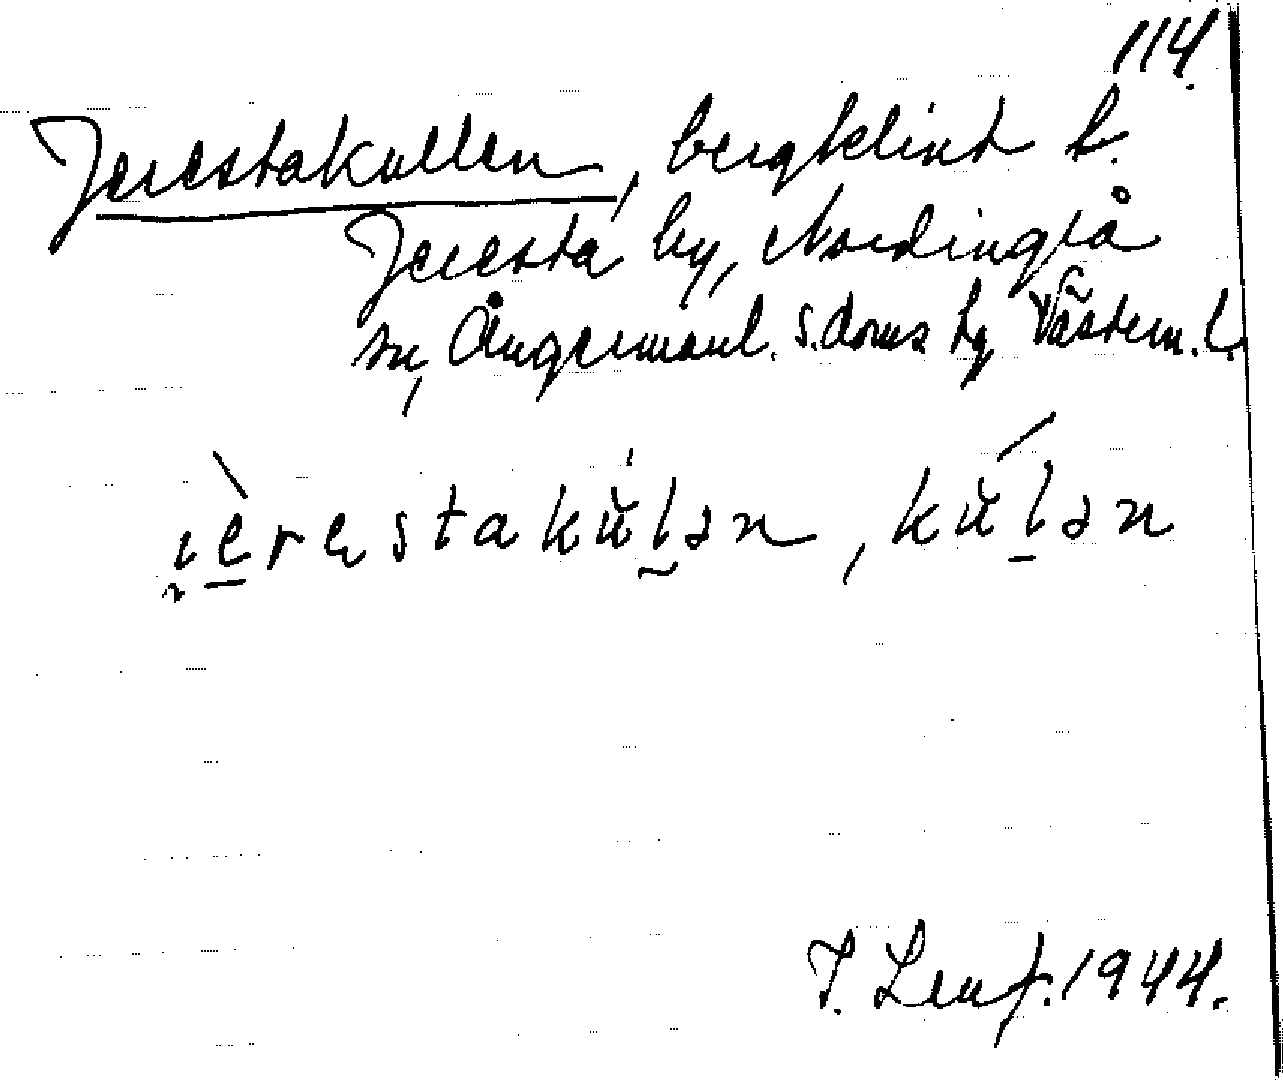 114.
Jerestakullen, bergklint t.
Jeresta by, Nordingrå
sn, Ångermanl. s. doms hg Västern. l.
i̯è̱restakŭ́l̰ən, kŭ́ḻən
T. Lenf. 1944.